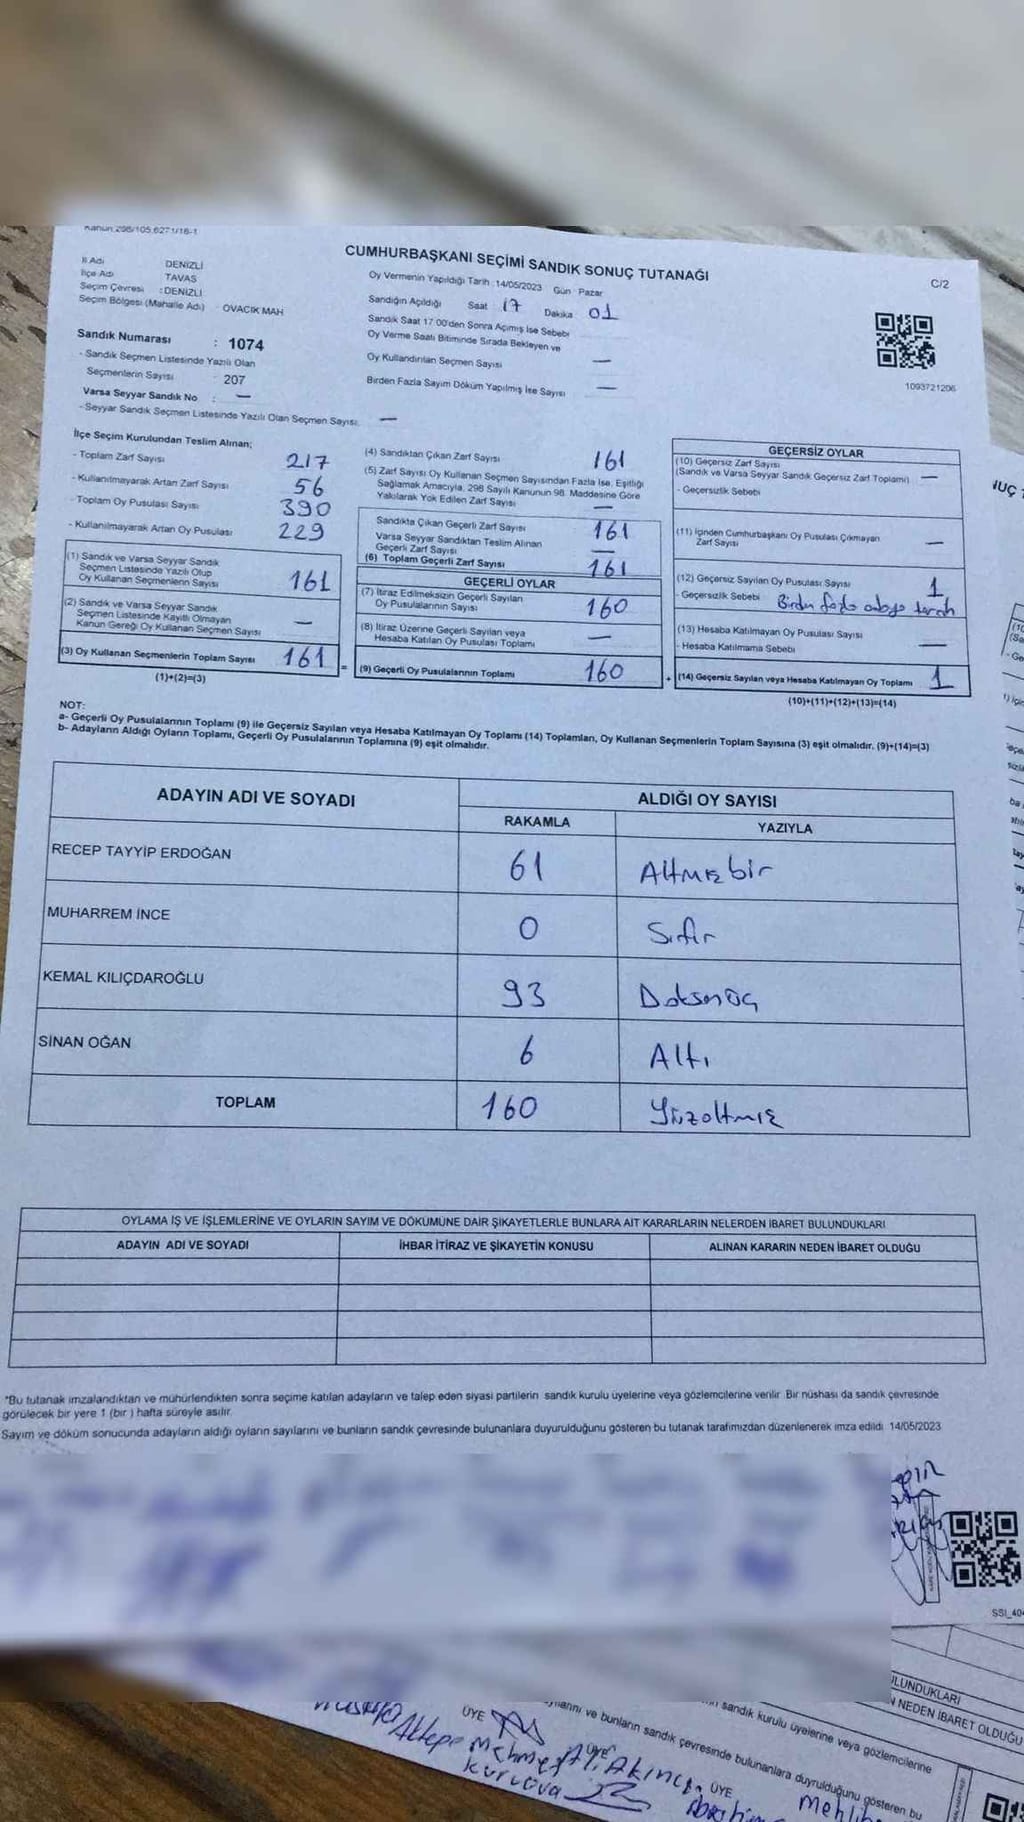 Kanun 298/105,6271/18-1
CUMHURBAŞKANI SEÇİMİ SANDIK SONUÇ TUTANAĞI
C/2
İl Adı DENİZLİ
İlçe Adı TAVAS
Seçim Çevresi : DENİZLİ
Seçim Bölgesi (Mahalle Adı) : OVACIK MAH
Oy Vermenin Yapıldığı Tarih : 14/05/2023 Gün : Pazar
Sandığın Açıldığı Saat 17 Dakika 01
Sandık Saat 17:00'den Sonra Açımış İse Sebebi
Oy Verme Saati Bitiminde Sırada Bekleyen ve
Oy Kullandırılan Seçmen Sayısı —
Birden Fazla Sayım Döküm Yapılmış İse Sayısı —
1093721206
Sandık Numarası : 1074
- Sandık Seçmen Listesinde Yazılı Olan
Seçmenlerin Sayısı : 207
Varsa Seyyar Sandık No : —
- Seyyar Sandık Seçmen Listesinde Yazılı Olan Seçmen Sayısı: —
İlçe Seçim Kurulundan Teslim Alınan;
- Toplam Zarf Sayısı 217
- Kullanılmayarak Artan Zarf Sayısı 56
- Toplam Oy Pusulası Sayısı 390
- Kullanılmayarak Artan Oy Pusulası 229
(1) Sandık ve Varsa Seyyar Sandık
Seçmen Listesinde Yazılı Olup
Oy Kullanan Seçmenlerin Sayısı 161
(2) Sandık ve Varsa Seyyar Sandık
Seçmen Listesinde Kayıtlı Olmayan
Kanun Gereği Oy Kullanan Seçmen Sayısı —
(3) Oy Kullanan Seçmenlerin Toplam Sayısı 161 =
(1)+(2)=(3)
(4) Sandıktan Çıkan Zarf Sayısı 161
(5) Zarf Sayısı Oy Kullanan Seçmen Sayısından Fazla İse, Eşitliği
Sağlamak Amacıyla, 298 Sayılı Kanunun 98. Maddesine Göre
Yakılarak Yok Edilen Zarf Sayısı —
Sandıkta Çıkan Geçerli Zarf Sayısı 161
Varsa Seyyar Sandıktan Teslim Alınan
Geçerli Zarf Sayısı —
(6) Toplam Geçerli Zarf Sayısı 161
GEÇERLİ OYLAR
(7) İtiraz Edilmeksizin Geçerli Sayılan
Oy Pusulalarının Sayısı 160
(8) İtiraz Üzerine Geçerli Sayılan veya
Hesaba Katılan Oy Pusulası Toplamı —
(9) Geçerli Oy Pusulalarının Toplamı 160 +
GEÇERSİZ OYLAR
(10) Geçersiz Zarf Sayısı
(Sandık ve Varsa Seyyar Sandık Geçersiz Zarf Toplamı) —
- Geçersizlik Sebebi
(11) İçinden Cumhurbaşkanı Oy Pusulası Çıkmayan
Zarf Sayısı —
(12) Geçersiz Sayılan Oy Pusulası Sayısı 1
- Geçersizlik Sebebi Birden fazla adaya tercih
(13) Hesaba Katılmayan Oy Pusulası Sayısı
- Hesaba Katılmama Sebebi —
(14) Geçersiz Sayılan veya Hesaba Katılmayan Oy Toplamı 1
(10)+(11)+(12)+(13)=(14)
NOT:
a- Geçerli Oy Pusulalarının Toplamı (9) ile Geçersiz Sayılan veya Hesaba Katılmayan Oy Toplamı (14) Toplamları, Oy Kullanan Seçmenlerin Toplam Sayısına (3) eşit olmalıdır. (9)+(14)=(3)
b- Adayların Aldığı Oyların Toplamı, Geçerli Oy Pusulalarının Toplamına (9) eşit olmalıdır.
ADAYIN ADI VE SOYADI ALDIĞI OY SAYISI
RAKAMLA YAZIYLA
RECEP TAYYİP ERDOĞAN 61 Altmışbir
MUHARREM İNCE 0 Sıfır
KEMAL KILIÇDAROĞLU 93 Doksanüç
SİNAN OĞAN 6 Altı
TOPLAM 160 Yüzaltmış
OYLAMA İŞ VE İŞLEMLERİNE VE OYLARIN SAYIM VE DÖKÜMÜNE DAİR ŞİKAYETLERLE BUNLARA AİT KARARLARIN NELERDEN İBARET BULUNDUKLARI
ADAYIN ADI VE SOYADI İHBAR İTİRAZ VE ŞİKAYETİN KONUSU ALINAN KARARIN NEDEN İBARET OLDUĞU
*Bu tutanak imzalandıktan ve mühürlendikten sonra seçime katılan adayların ve talep eden siyasi partilerin sandık kurulu üyelerine veya gözlemcilerine verilir. Bir nüshası da sandık çevresinde
görülecek bir yere 1 (bir ) hafta süreyle asılır.
Sayım ve döküm sonucunda adayların aldığı oyların sayılarını ve bunların sandık çevresinde bulunanlara duyurulduğunu gösteren bu tutanak tarafımızdan düzenlenerek imza edildi 14/05/2023
SSI_40
LUNDUKLARI
NEDEN İBARET OLDUĞU
sandık kurulu üyelerine veya gözlemcilerine
ve bunların sandık çevresinde bulunanlara duyurulduğunu gösteren bu
ÜYE ÜYE ÜYE
Aktepe Mehmet Ali Akıncı